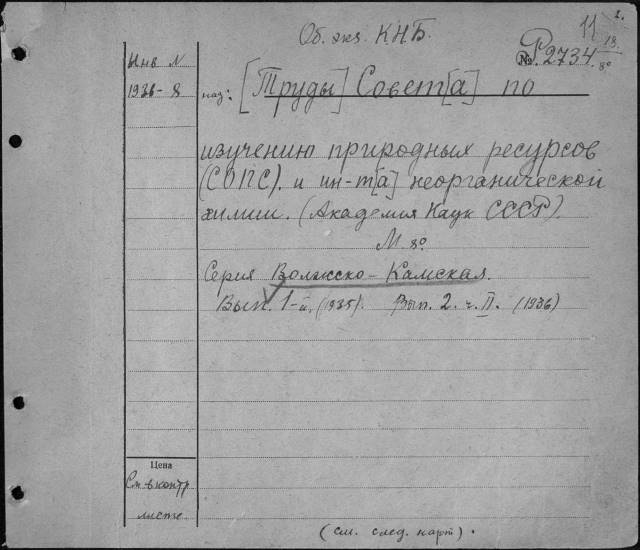 11 2.
Об. экз. К.Н.Б.
№ Р2734 18/8°
Инв N
1936-8
наз: [Труды] Совет[а] по
изучению природных ресурсов
(СОПС). и ин-т[а] неорганической
химии. (Академия Наук СССР).
М 8°
Серия Волжско-Камская.
Вып. 1-й. (1935). Вып. 2. ч. II. (1936)
Цена
См в контр
листе
(см. след. карт).